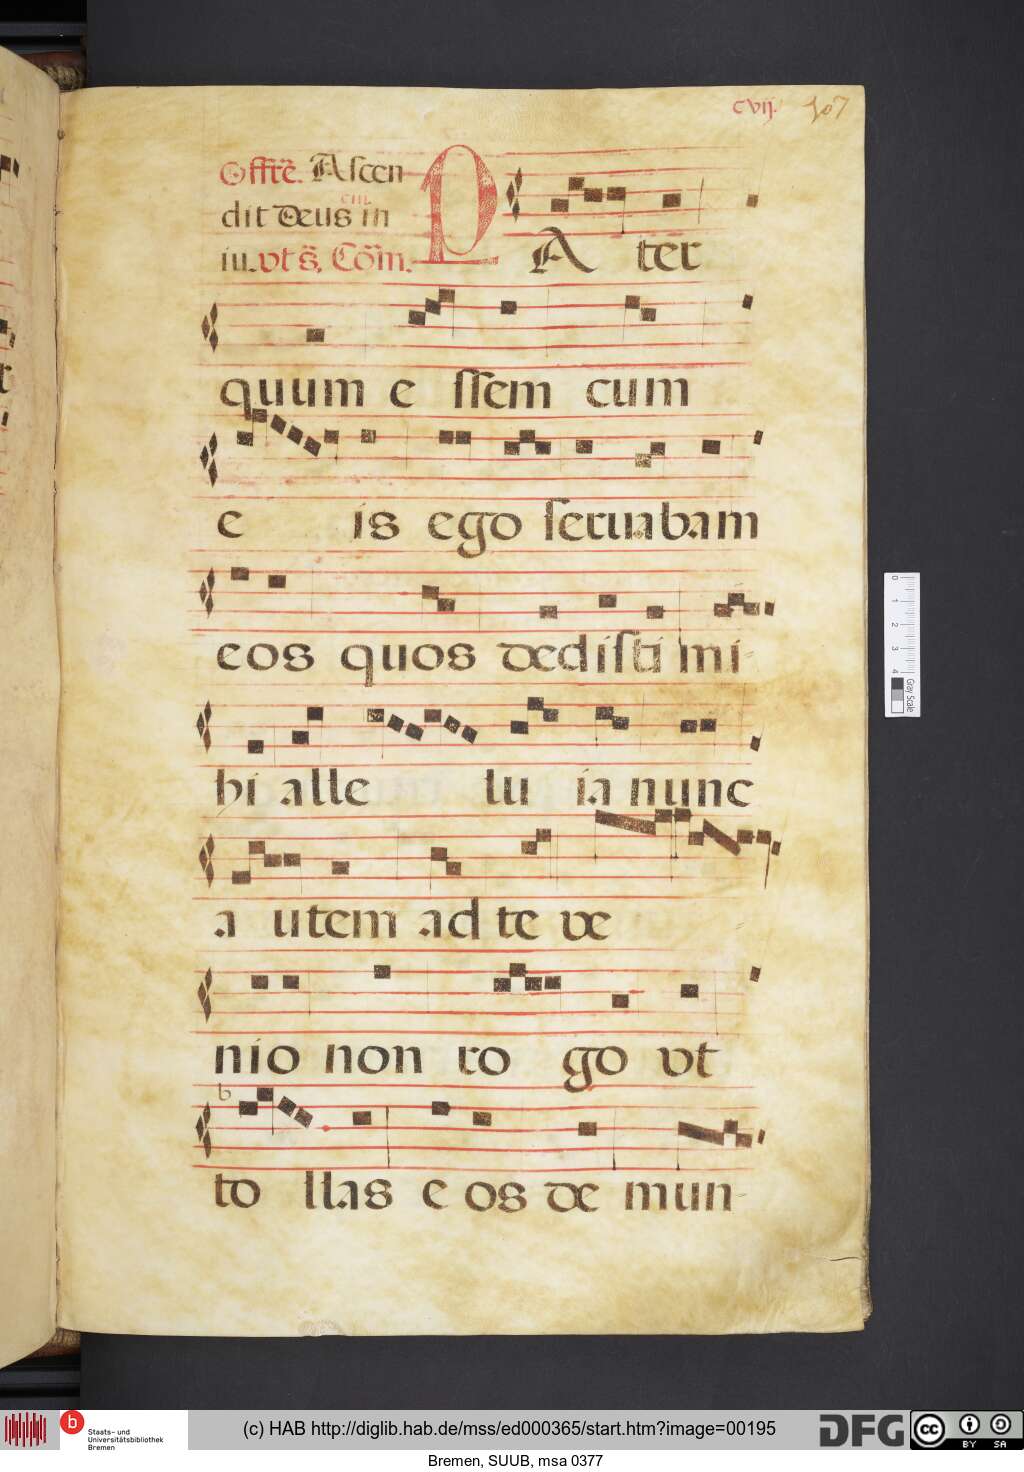 cvij. 107
Offrē. Ascen
dit deus in
iu. vt s̄. Cōm. PAter
quum essem cum
eis ego seruabam
eos quos dedisti mi-
hi alleluia nunc
autem ad te ve
nio non rogo vt
tollas eos de mun-
0 1 2 3 4
Gray Scale
b Staats- und
Universitätsbibliothek
Bremen
(c) HAB http://diglib.hab.de/mss/ed000365/start.htm?image=00195
DFG
cc BY SA
Bremen, SUUB, msa 0377